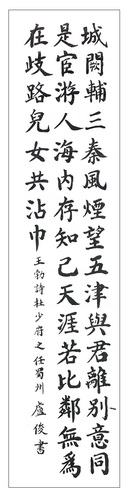 城闕輔三秦風煙望五津與君離別意同
是宦游人海內存知己天涯若比鄰無為
在歧路兒女共沾巾 王勃詩杜少府之任蜀州 盧俊書